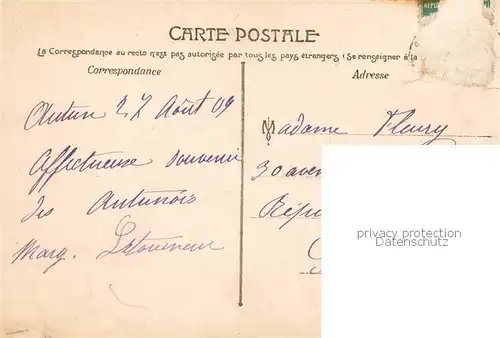 RÉPUB
CARTE POSTALE
La Correspondance au recto n'est pas autorisée par tous les pays étrangers (Se renseigner à la
Correspondance
Autun 27 Août 09
Affectueux souvenir
des Autunois
Marg.
Adresse
Madame Fleury
30 aven
Répu
privacy protection
Datenschutz